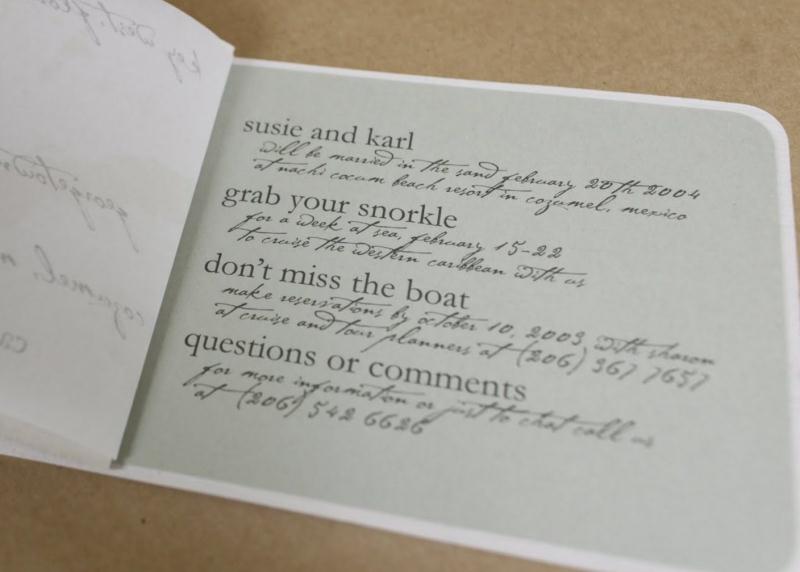 key west, flor
georgetown
cozumel, m
ca
susie and karl
will be married in the sand february 20th 2004
at nachi cocum beach resort in cozumel, mexico
grab your snorkle
for a week at sea, february 15-22
to cruise the western caribbean with us
don't miss the boat
make reservations by october 10, 2003 with sharon
at cruise and tour planners at (206) 367 7657
questions or comments
for more information or just to chat call us
at (206) 542 6626